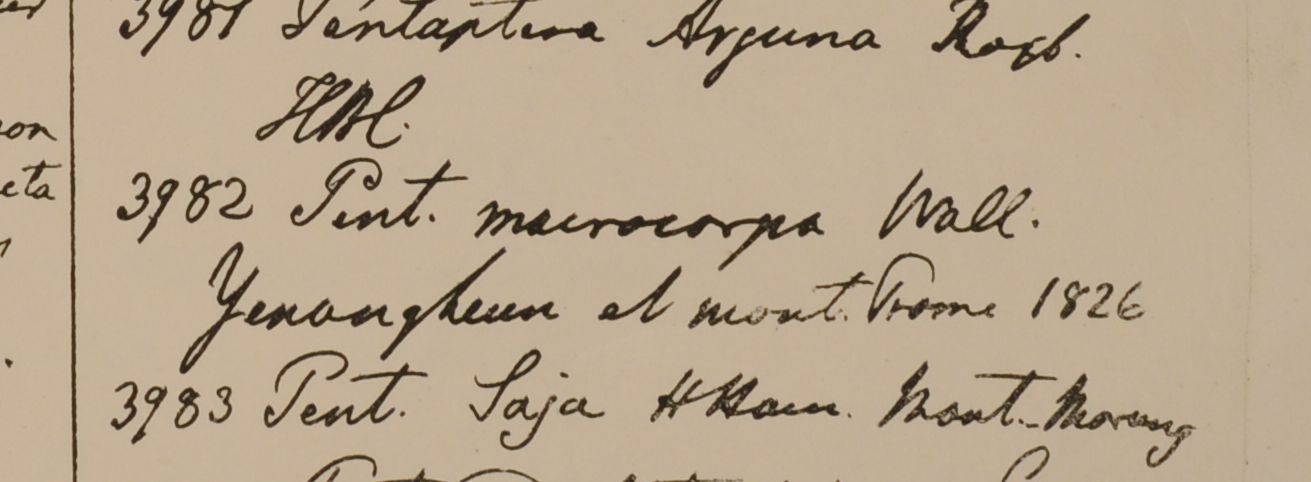 3981 Pentaptera Arguna Roxb.
HBC.
3982 Pent. macrocarpa Wall.
Yenangheun et mont. Prome 1826
3983 Pent. Saja HHam. Mont. Morung